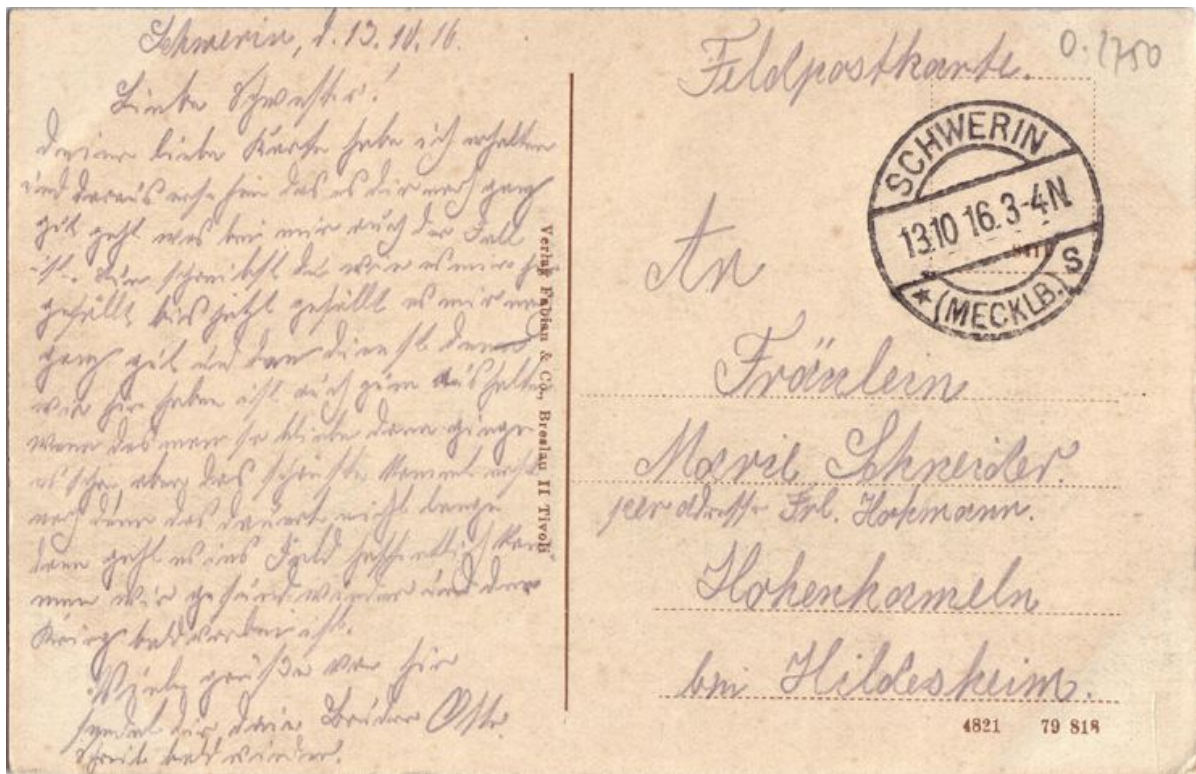 Schwerin, d. 13.10.16.
Liebe Schwester!
Deine liebe Karte habe ich erhalten
und daraus ersehen das es dir noch ganz
gut geht was bei mir auch der Fall
ist. Nun schreibst du wie es mir hier
gefällt bis jetzt gefällt es mir noch
ganz gut und den Dienst den
wir hier haben ist auch zum aushalten
wenn das man so bliebe dann ginge
es schon aber das schönste kommt erst
noch denn das dauert nicht lange
dann geht es ins Feld hoffentlich kom
men wir gesund wieder und der
Krieg bald vorbei ist.
Viele grüße von hier
sendet dir dein Bruder Otto.
Schreib bald wieder.
Verlag Fabian & Co., Breslau II Tivoli
Feldpostkarte.
0.2750
SCHWERIN
13.10.16.3-4N.
* (MECKLB.) S
An
Fräulein
Marie Schneider.
per adresse Frl. Hohmann.
Hohenhameln
bei Hildesheim.
4821 79 818